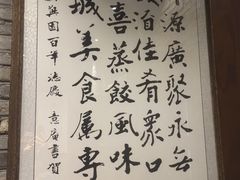 源廣聚永無
泊佳肴眾口
喜蒸餃風味
城美食屬專
國百年誌慶 意庵書賀